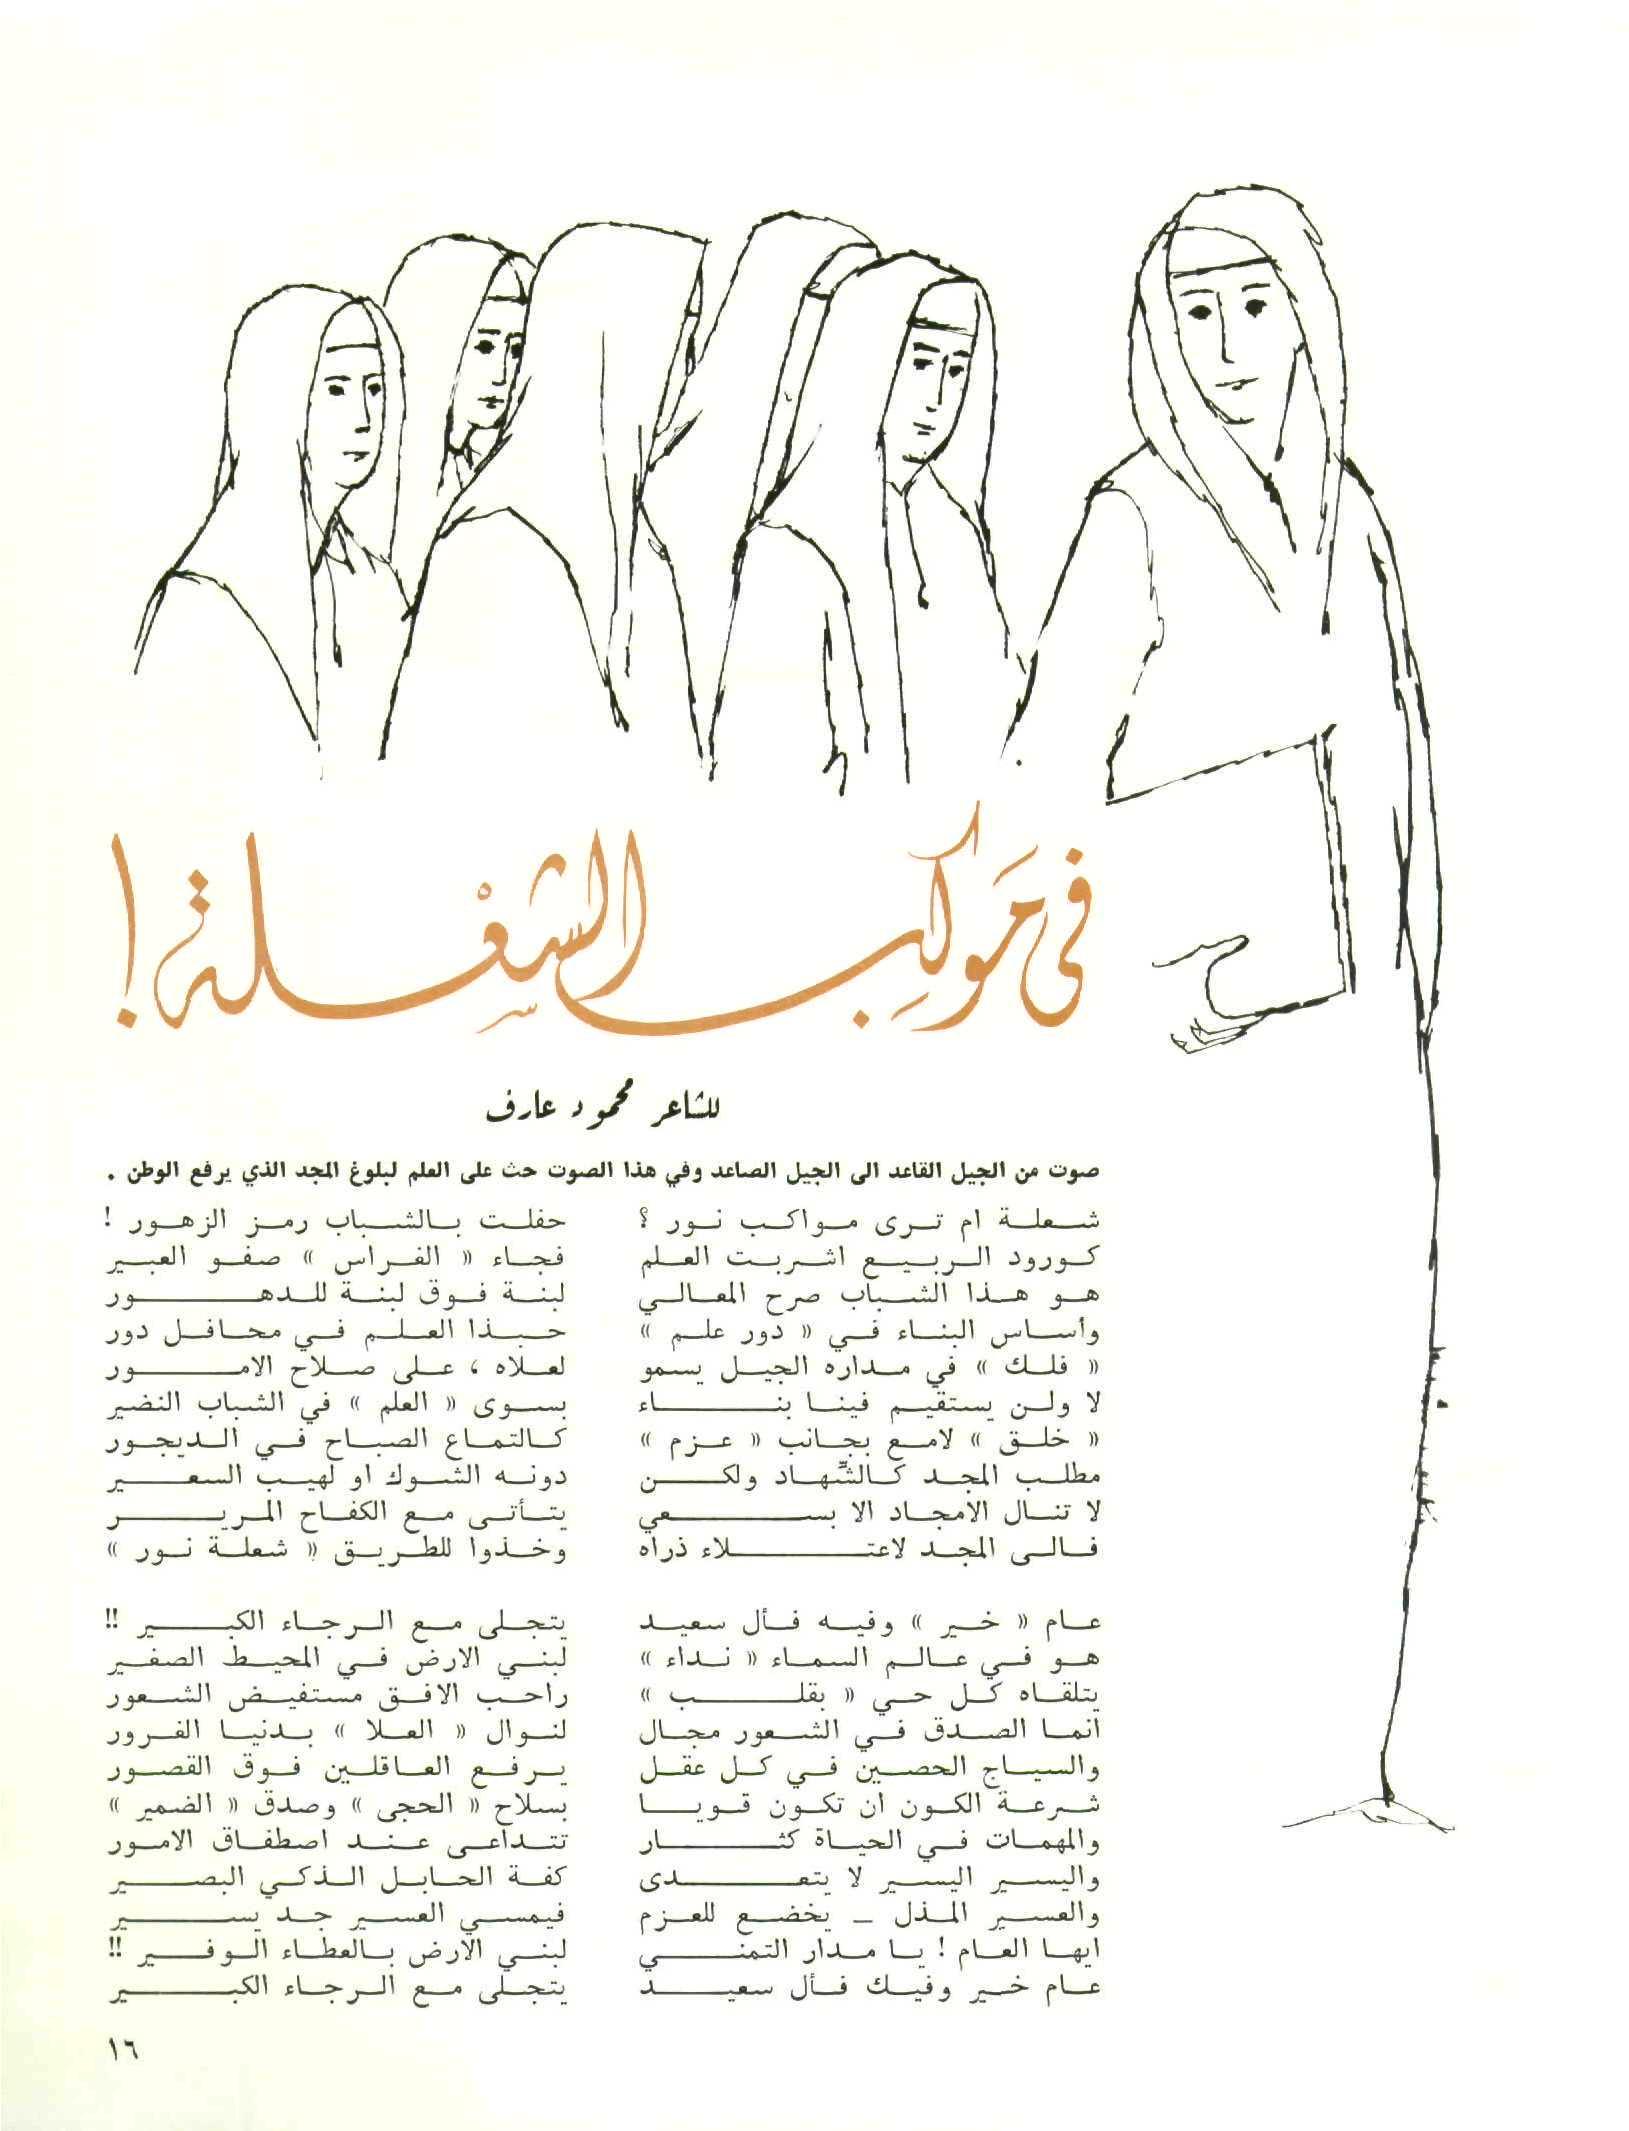 في موكب الشعلة !
للشاعر محمود عارف
صوت من الجيل القاعد الى الجيل الصاعد وفي هذا الصوت حث على العلم لبلوغ المجد الذي يرفع الوطن .
شعلة ام ترى مواكب نور ؟ حفلت بالشباب رمز الزهور !
كورود الربيع اشربت العلم فجاء « الغراس » صفو العبير
هو هذا الشباب صرح المعالي لبنة فوق لبنة للدهور
وأساس البناء في « دور علم » حبذا العلم في محافل دور
« فلك » في مداره الجيل يسمو لعلاه ، على صلاح الامور
لا ولن يستقيم فينا بناء بسوى « العلم » في الشباب النضير
« خلق » لامع بجانب « عزم » كالتماع الصباح في الديجور
مطلب المجد كالشهاد ولكن دونه الشوك او لهيب السعير
لا تنال الامجاد الا بسعي يتأتى مع الكفاح المرير
فالى المجد لاعتلاء ذراه وخذوا للطريق « شعلة نور »
عام « خير » وفيه فأل سعيد يتجلى مع الرجاء الكبير !!
هو في عالم السماء « نداء » لبني الارض في المحيط الصغير
يتلقاه كل حي « بقلب » راحب الافق مستفيض الشعور
انما الصدق في الشعور مجال لنوال « العلا » بدنيا الغرور
والسياج الحصين في كل عقل يرفع العاقلين فوق القصور
شرعة الكون ان تكون قويا بسلاح « الحجى » وصدق « الضمير »
والمهمات في الحياة كثار تتداعى عند اصطفاق الامور
واليسير اليسير لا يتعدى كفة الحابل الذكي البصير
والعسير المذل – يخضع للعزم فيمسي العسير جد يسير
ايها العام ! يا مدار التمني لبني الارض بالعطاء الوفير !!
عام خير وفيك فأل سعيد يتجلى مع الرجاء الكبير
١٦